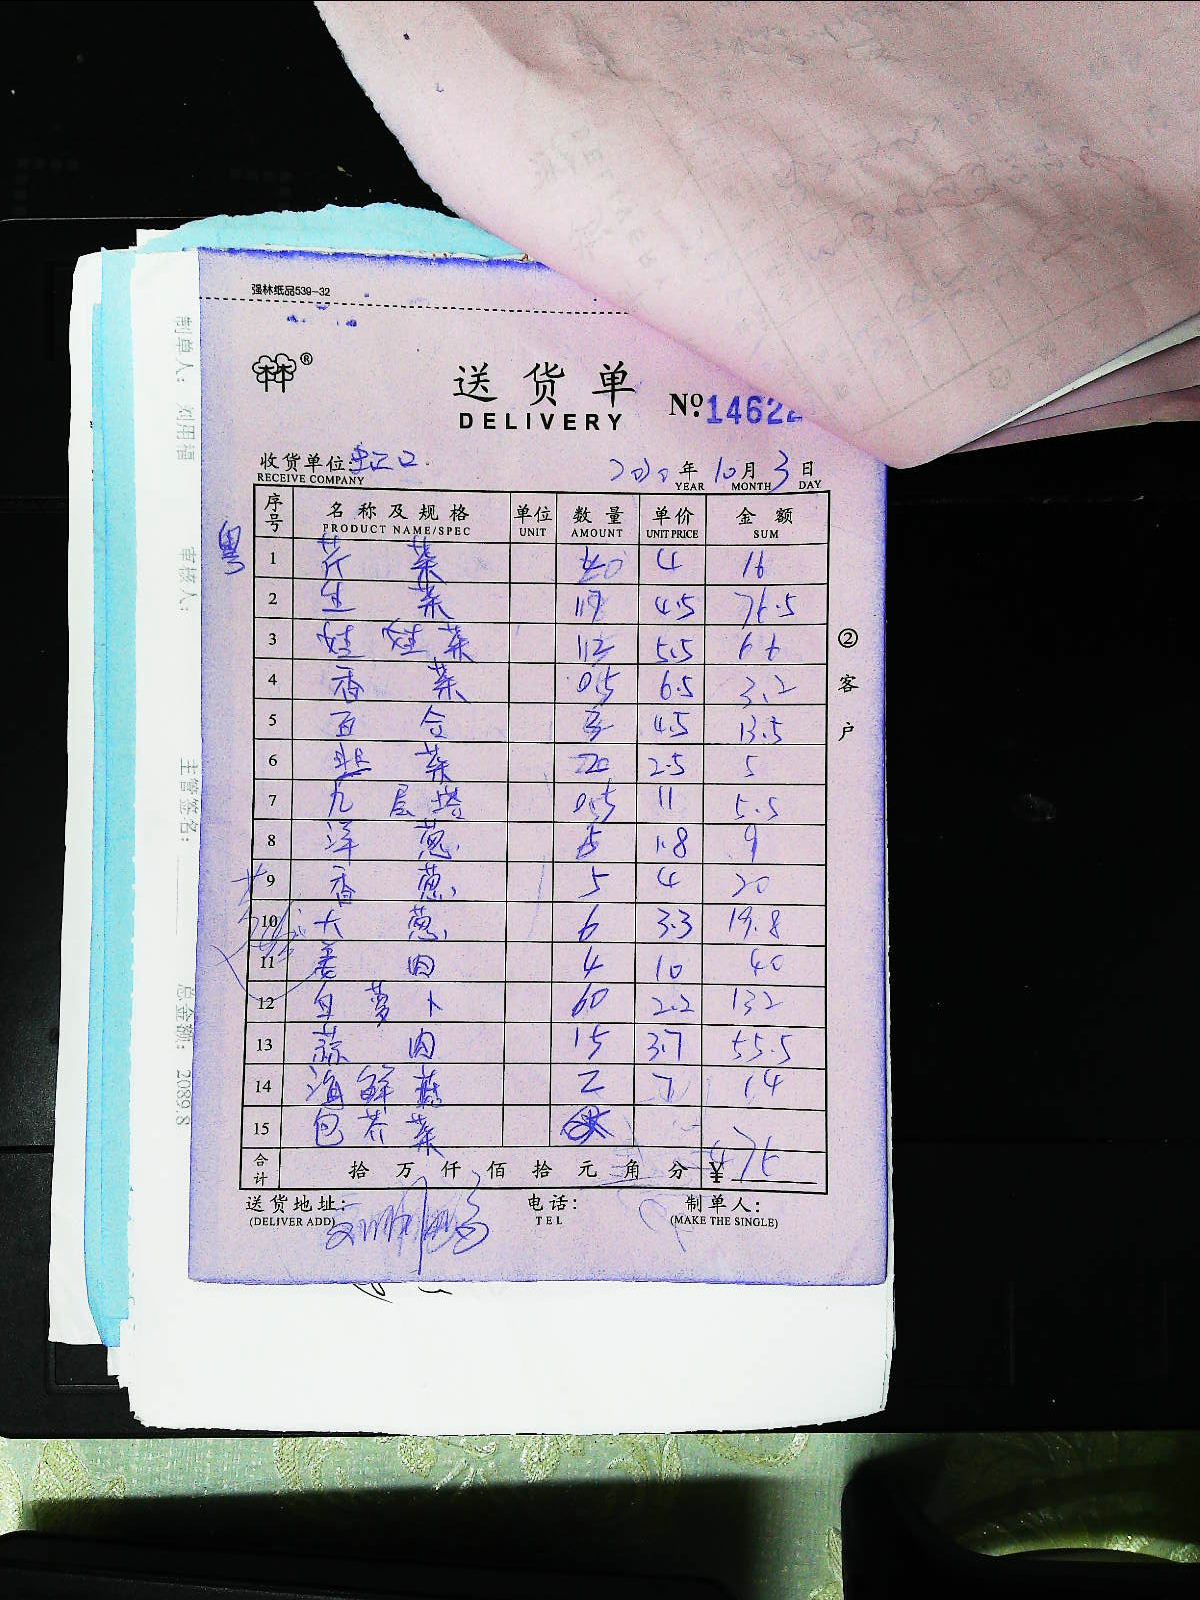 强林纸品539-32
®
送货单
DELIVERY
№ 14622
收货单位:
RECEIVE COMPANY
2020年 10月 3日
YEAR MONTH DAY
序号 名称及规格 单位 数量 单价 金额
PRODUCT NAME/SPEC UNIT AMOUNT UNIT PRICE SUM
粤
1 芹菜 4 16
2 生菜 17 4.5 76.5
3 娃娃菜 12 5.5 66
4 香菜 0.5 6.5 3.2
5 百合 3 4.5 13.5
6 韭菜 2.5 5
7 九层塔 0.5 11 5.5
8 洋葱 5 1.8 9
9 香葱 5 4 20
10 大葱 6 3.3 19.8
11 姜肉 4 10 40
12 白萝卜 60 2.2 132
13 蒜肉 15 3.7 55.5
14 海鲜菇 2 7 14
15 包芥菜
合计 拾万仟佰拾元角分 ¥
送货地址: 电话: 制单人:
(DELIVER ADD) TEL (MAKE THE SINGLE)
②客户
制单人: 刘用福
审核人:
主管签名:
总金额: 2089.8